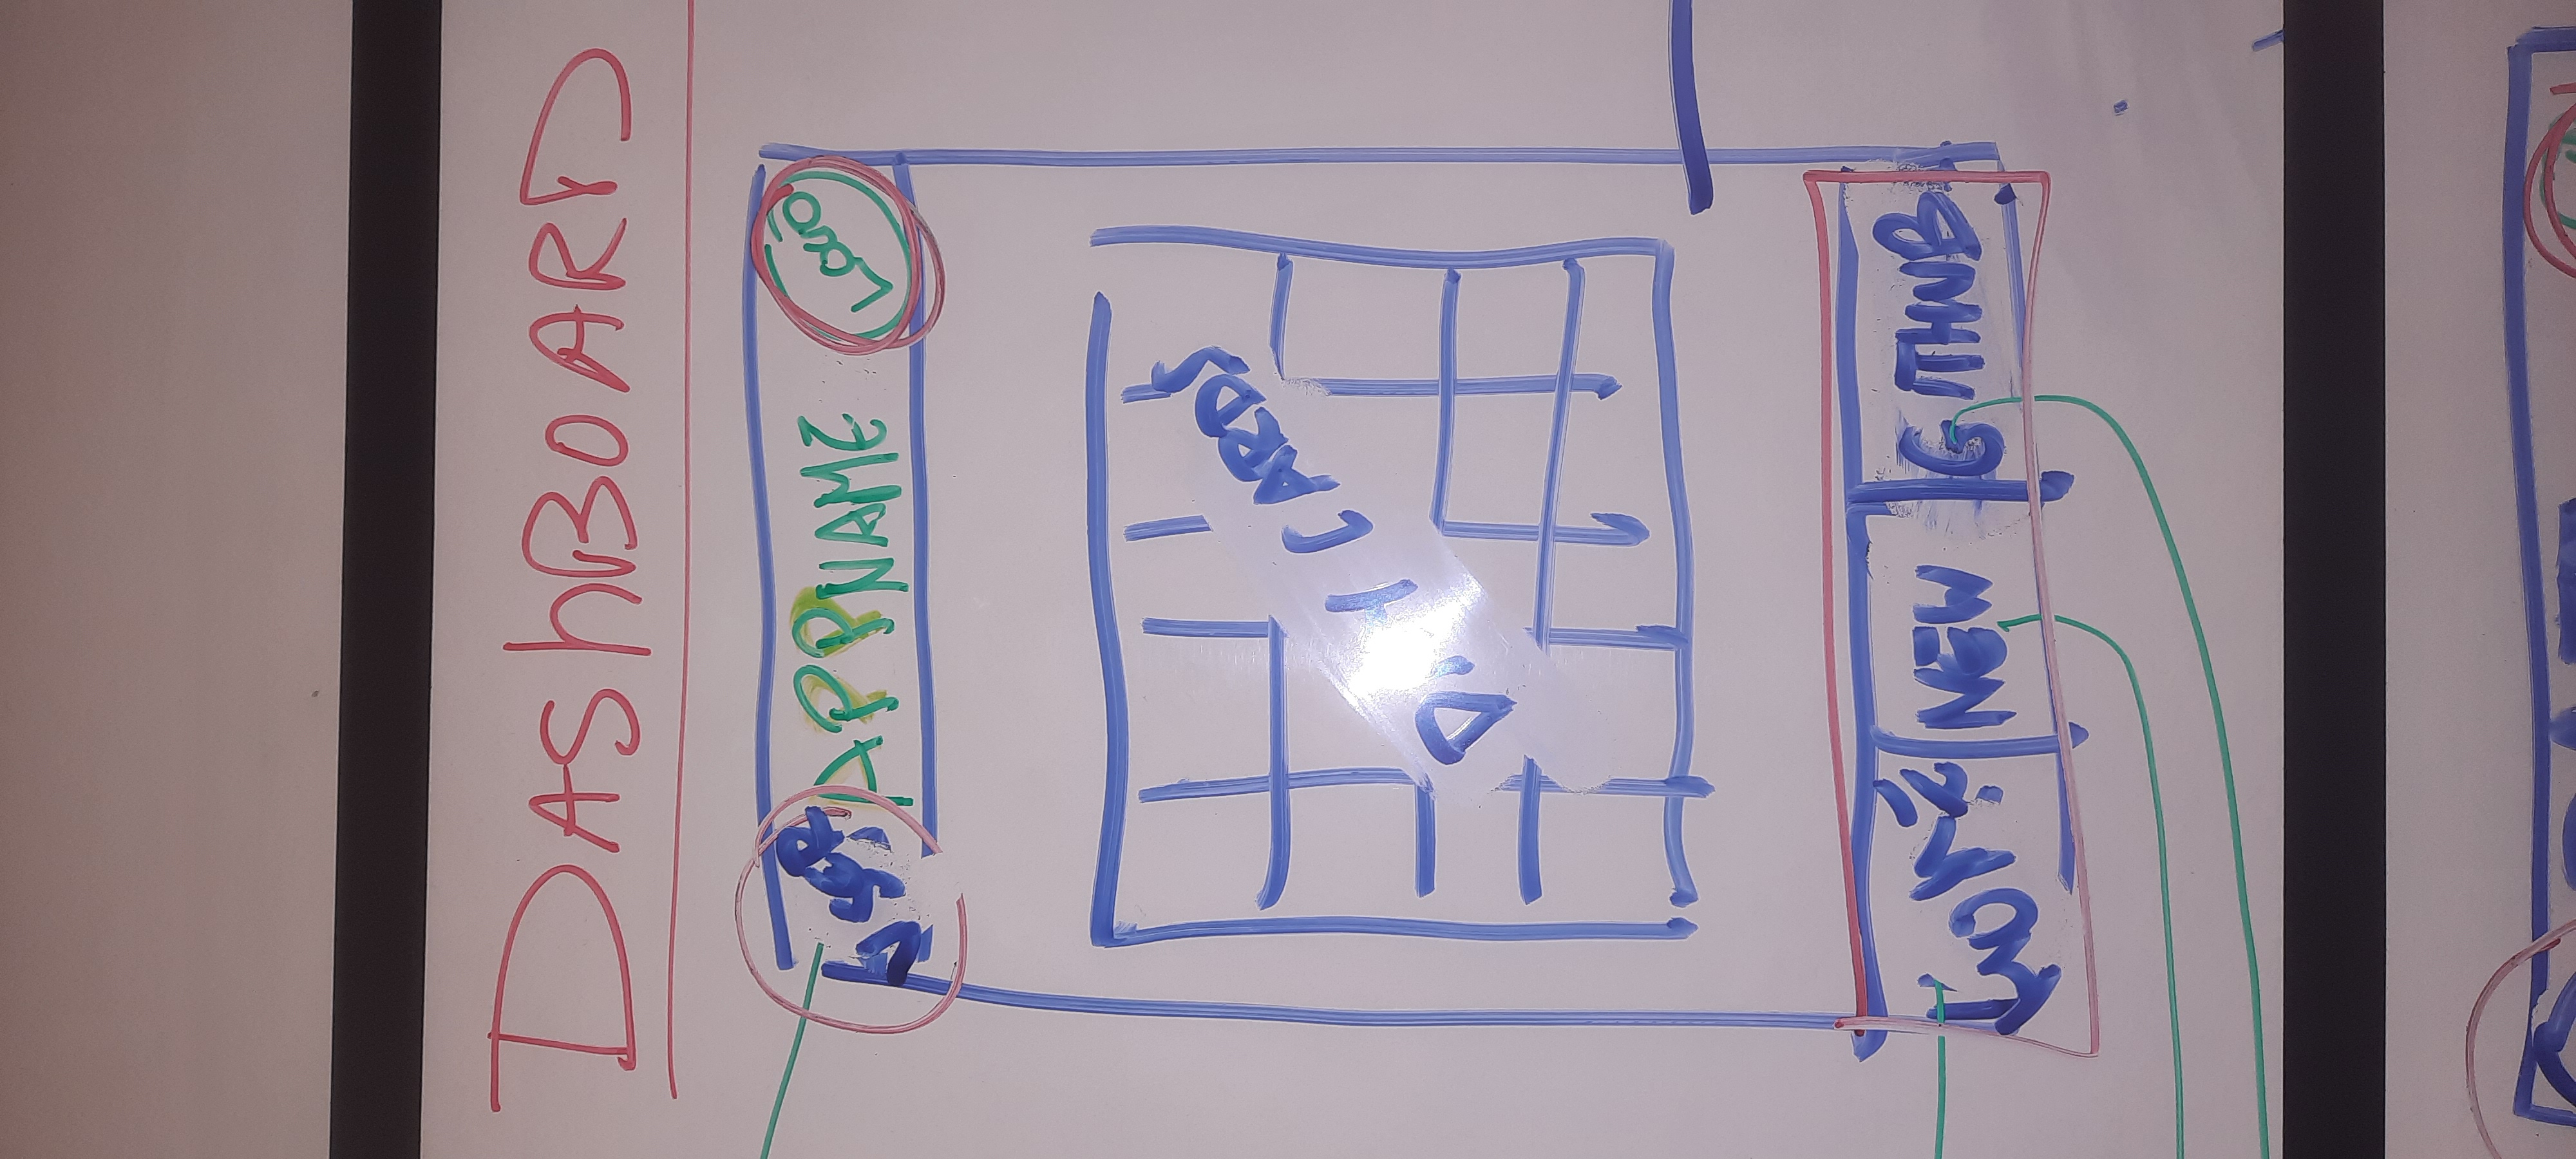 DASHBOARD
USER APPNAME LOGO
DAY CARDS
HOME NEW GITHUB